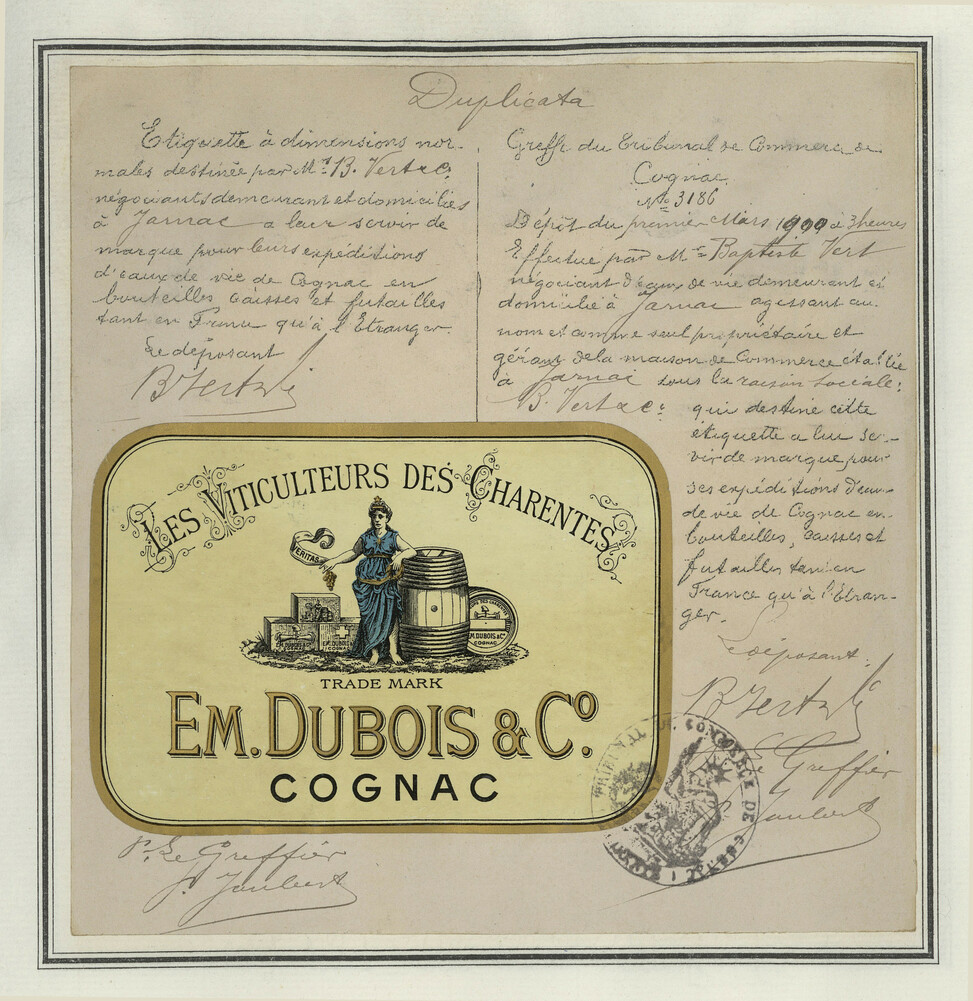 Duplicata
Etiquette à dimensions nor-
males destinée par Mr. B. Vert & Cie
négociants demeurant et domiciliés
à Jarnac a leur servir de
marque pour leurs expéditions
d'eaux de vie de Cognac en
bouteilles, caisses et futailles
tant en France qu'à l'Etranger.
Le déposant
B Vert & Cie
Greffe du Tribunal de Commerce de
Cognac
No 3186
Dépôt du premier Mars 1900 à 3 heures
Effectué par Mr. Baptiste Vert
négociant d'eaux de vie demeurant et
domicilié à Jarnac agissant au
nom et comme seul propriétaire et
gérant de la maison de Commerce établie
à Jarnac sous la raison sociale:
B. Vert & Cie qui destine cette
étiquette a lui ser-
vir de marque pour
ses expéditions d'eau-
de vie de Cognac en
bouteilles, caisses et
futailles tant en
France qu'à l'Etran-
ger.
Le déposant.
B Vert & Cie
Le Greffier
J. Joubert
LES VITICULTEURS DES CHARENTES
VERITAS
EM. DUBOIS & Co
COGNAC
TRADE MARK
EM. DUBOIS & Co.
COGNAC
TRIBUNAL DE COMMERCE DE COGNAC
Pr. Le Greffier
J. Joubert